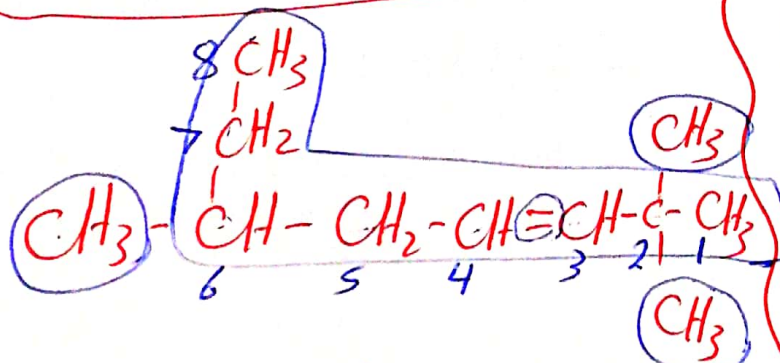 8 CH3
7 CH2 CH3
CH3 - CH - CH2 - CH = CH - C - CH3
6 5 4 3 2 1
CH3